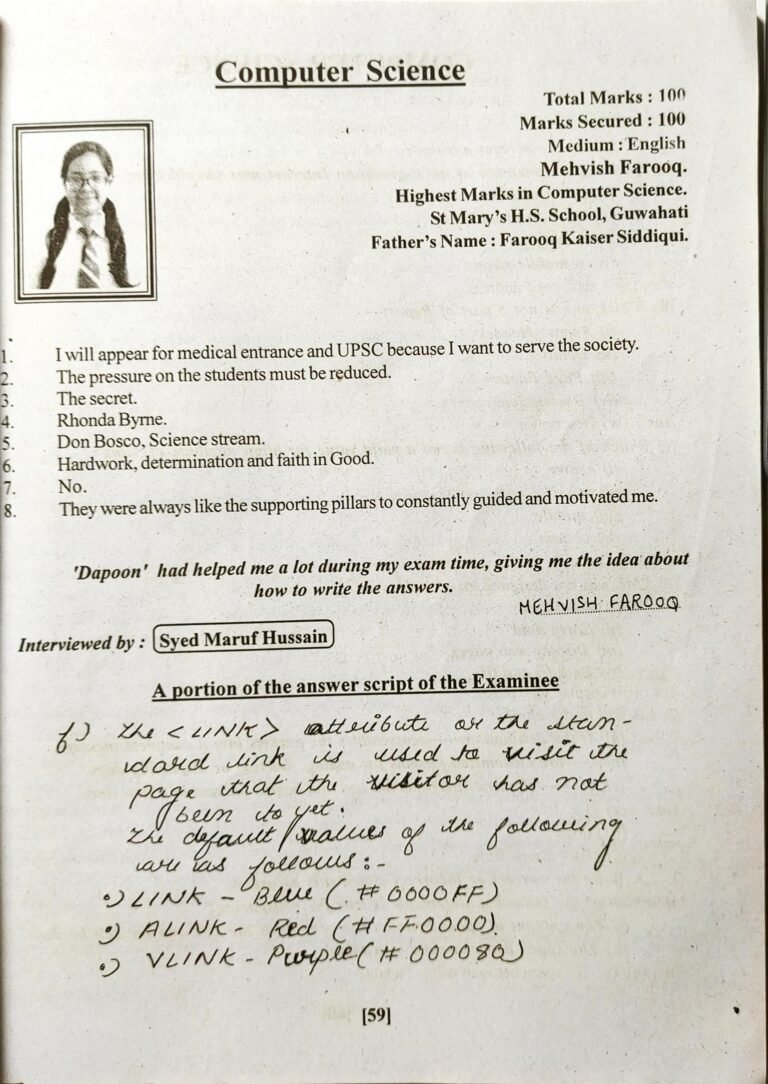 Computer Science
Total Marks : 100
Marks Secured : 100
Medium : English
Mehvish Farooq.
Highest Marks in Computer Science.
St Mary's H.S. School, Guwahati
Father's Name : Farooq Kaiser Siddiqui.
1. I will appear for medical entrance and UPSC because I want to serve the society.
2. The pressure on the students must be reduced.
3. The secret.
4. Rhonda Byrne.
5. Don Bosco, Science stream.
6. Hardwork, determination and faith in Good.
7. No.
8. They were always like the supporting pillars to constantly guided and motivated me.
'Dapoon' had helped me a lot during my exam time, giving me the idea about
how to write the answers.
MEHVISH FAROOQ
Interviewed by : Syed Maruf Hussain
A portion of the answer script of the Examinee
f) The <LINK> attribute or the stan-
dard link is used to visit the
page that the visitor has not
been to yet.
The default values of the following
are as follows:-
•) LINK - Blue (#0000FF)
•) ALINK - Red (#FF0000).
•) VLINK - Purple (#000080)
[59]